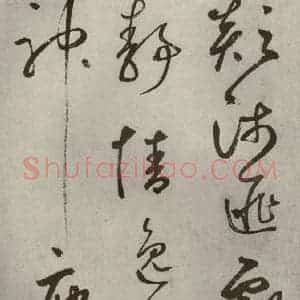 顛沛匪虧
靜情逸
神疲
Shufaziliao.com